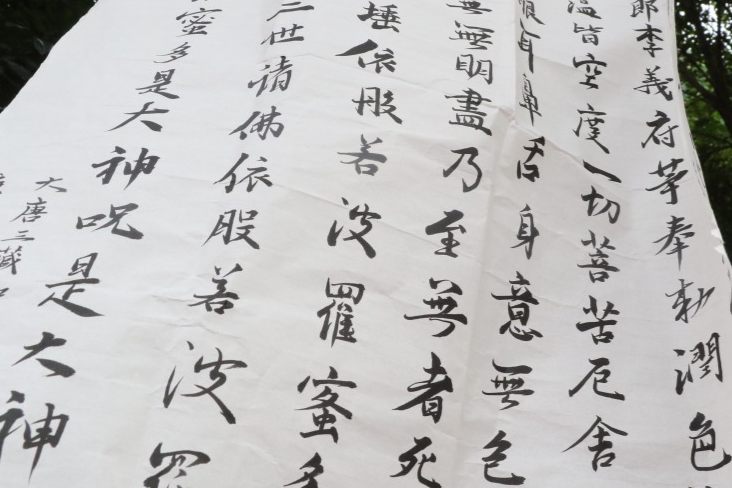 郎李義府等奉勅潤色
蘊皆空度一切菩苦厄舍
眼耳鼻舌身意無色
無無明盡乃至無者死
埵依般若波羅蜜多
三世諸佛依般若波羅
蜜多是大神呪是大神
大唐三藏